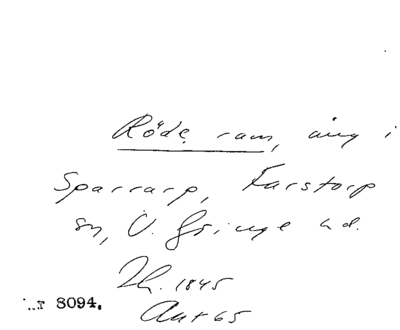 Röde ram, äng i
Sparrarp, Farstorp
sn, V. Göinge hd.
Th. 1845
Ant 65
8094.